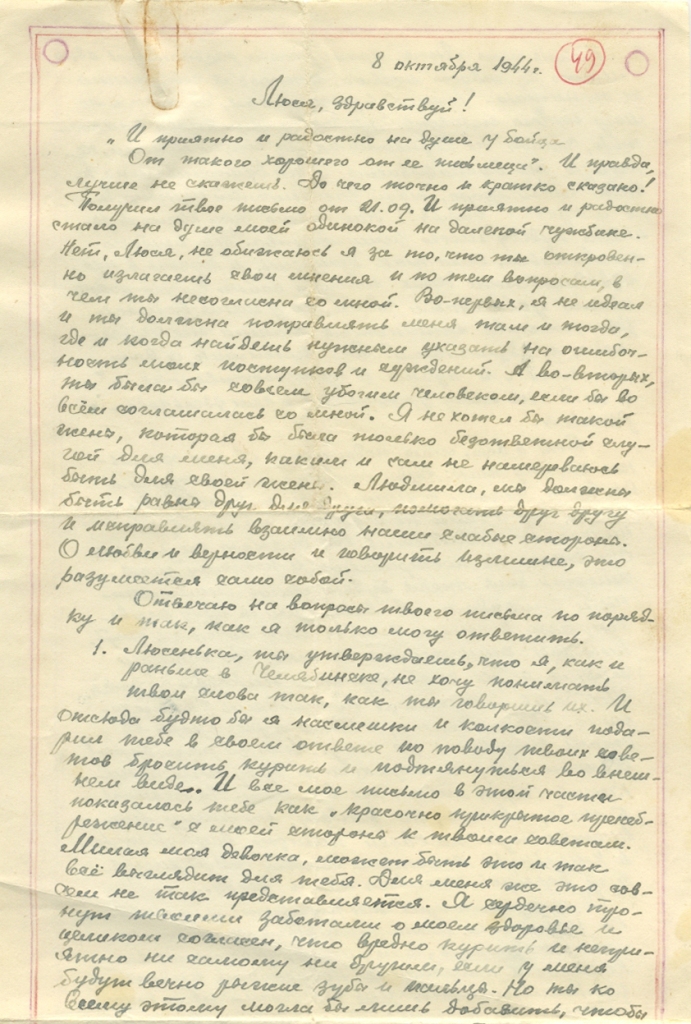 8 октября 1944 г.
49
Люся, здравствуй!
„И приятно и радостно на душе у бойца
От такого хорошего от ее письмеца". И правда,
лучше не скажешь. До чего точно и кратко сказано!
Получил твое письмо от 21.09. И приятно и радостно
стало на душе моей одинокой на далекой чужбине.
Нет, Люся, не обижаюсь я за то, что ты откровен-
но излагаешь свои мнения и по тем вопросам, в
чем ты несогласна со мной. Во-первых, я не идеал
и ты должна поправлять меня там и тогда,
где и когда найдешь нужным указать на ошибоч-
ность моих поступков и суждений. А во-вторых,
ты была бы совсем убогим человеком, если бы во
всём соглашалась со мной. Я не хотел бы такой
жены, которая бы была только безответной слу-
гой для меня, каким и сам не намереваюсь
быть для своей жены. Людмила, мы должны
быть равны друг для друга, помогать друг другу
и исправлять взаимно наши слабые стороны.
О любви и верности и говорить излишне, это
разумеется само собой.
Отвечаю на вопросы твоего письма по поряд-
ку и так, как я только могу ответить.
1. Люсенька, ты утверждаешь, что я, как и
раньше в Челябинске, не хочу понимать
твои слова так, как ты говоришь их. И
отсюда будто бы я насмешки и колкости пода-
рил тебе в своем ответе по поводу твоих сове-
тов бросить курить и подтянуться во внеш-
нем виде. И все мое письмо в этой части
показалось тебе как „красочно прикрытое пренеб-
режение" с моей стороны к твоим советам.
Милая моя девочка, может быть это и так
всё выглядит для тебя. Для меня же это сов-
сем не так представляется. Я сердечно тро-
нут твоими заботами о моем здоровье и
целиком согласен, что вредно курить и непри-
ятно ни самому ни другим, если у меня
будут вечно рыжие зубы и пальцы. Но ты ко
всему этому могла бы лишь добавить, чтобы